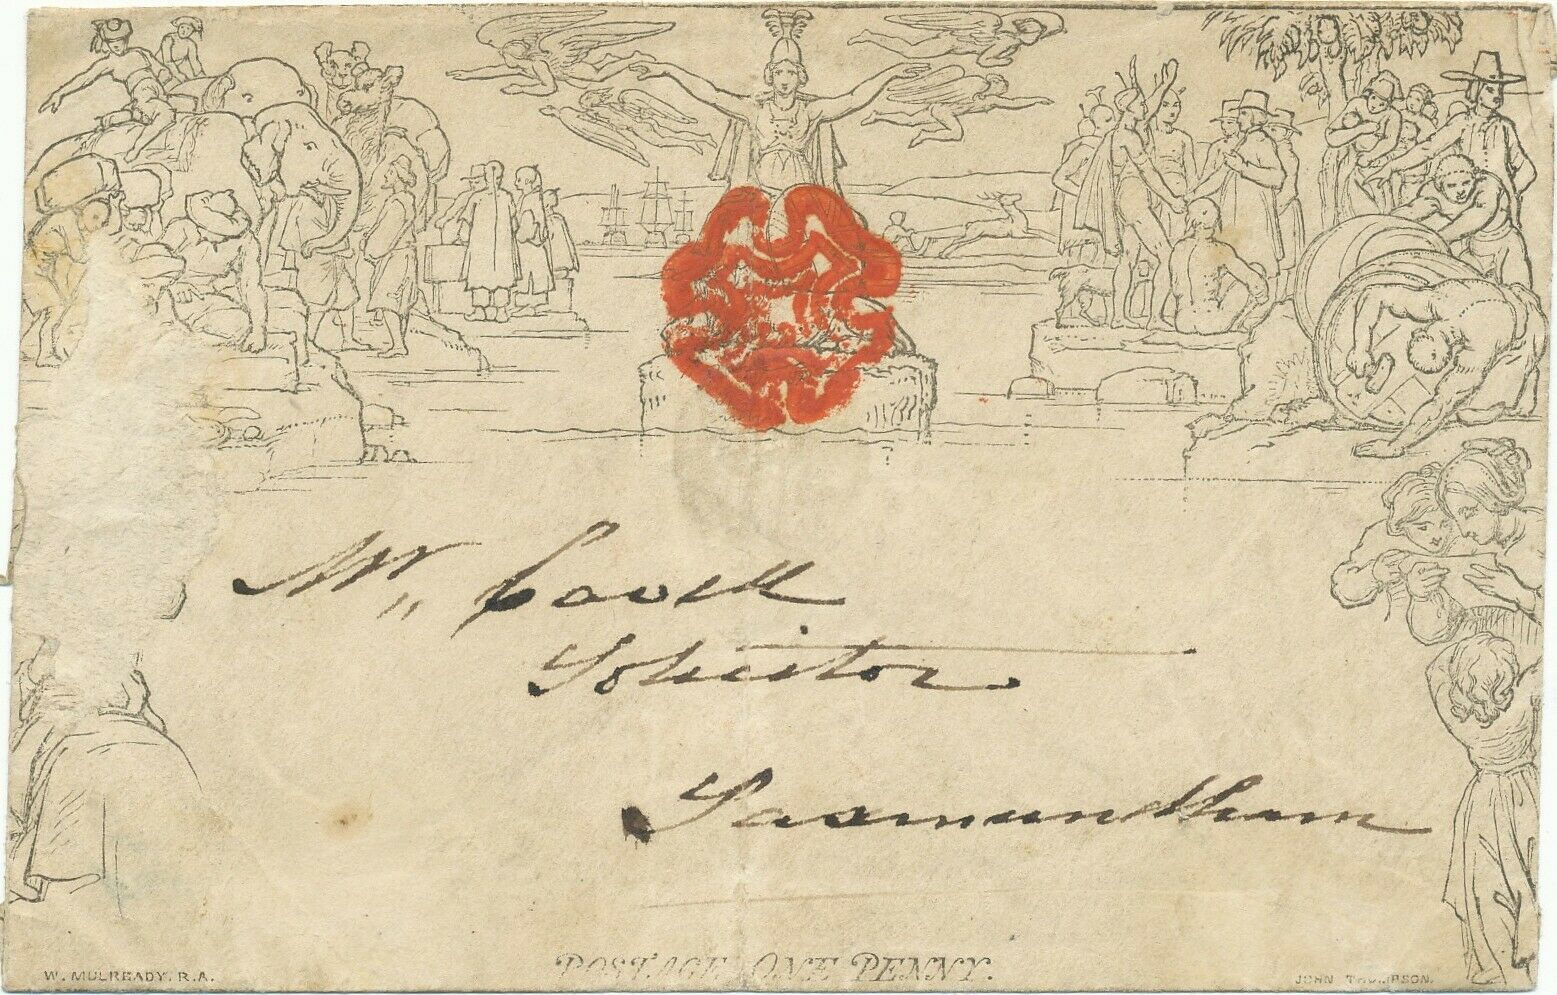 Mr,, Cavell
Solicitor
Saxmundham
POSTAGE ONE PENNY.
W. MULREADY. R.A.
JOHN THOMPSON.